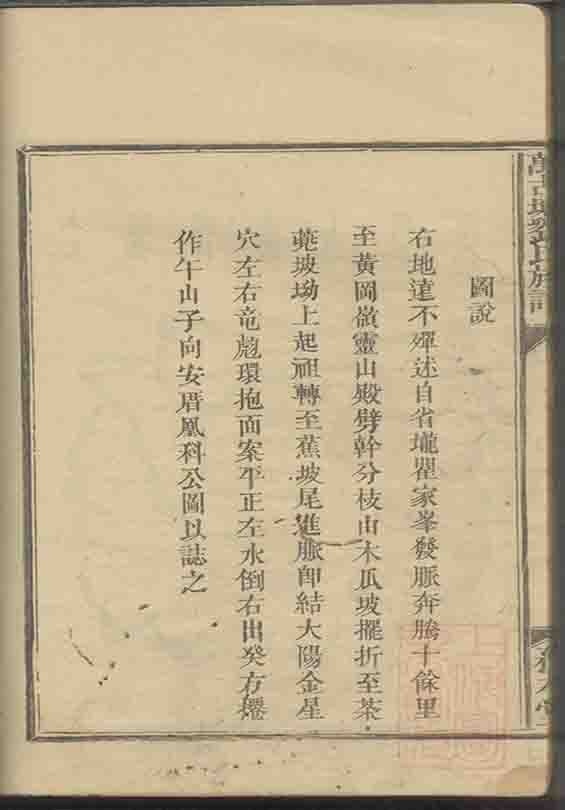 圖說
右地違不殫述自省壠瞿家峯發脈奔騰十餘里
至黃岡嶺靈山殿劈幹分枝由木瓜坡擺折至茶
蓢坡坳上起祖轉至蕉坡尾進脈卽結大陽金星
穴左右竜虎環抱面案平正左水倒右出癸方遷
作午山子向安厝鳳科公圖以誌之